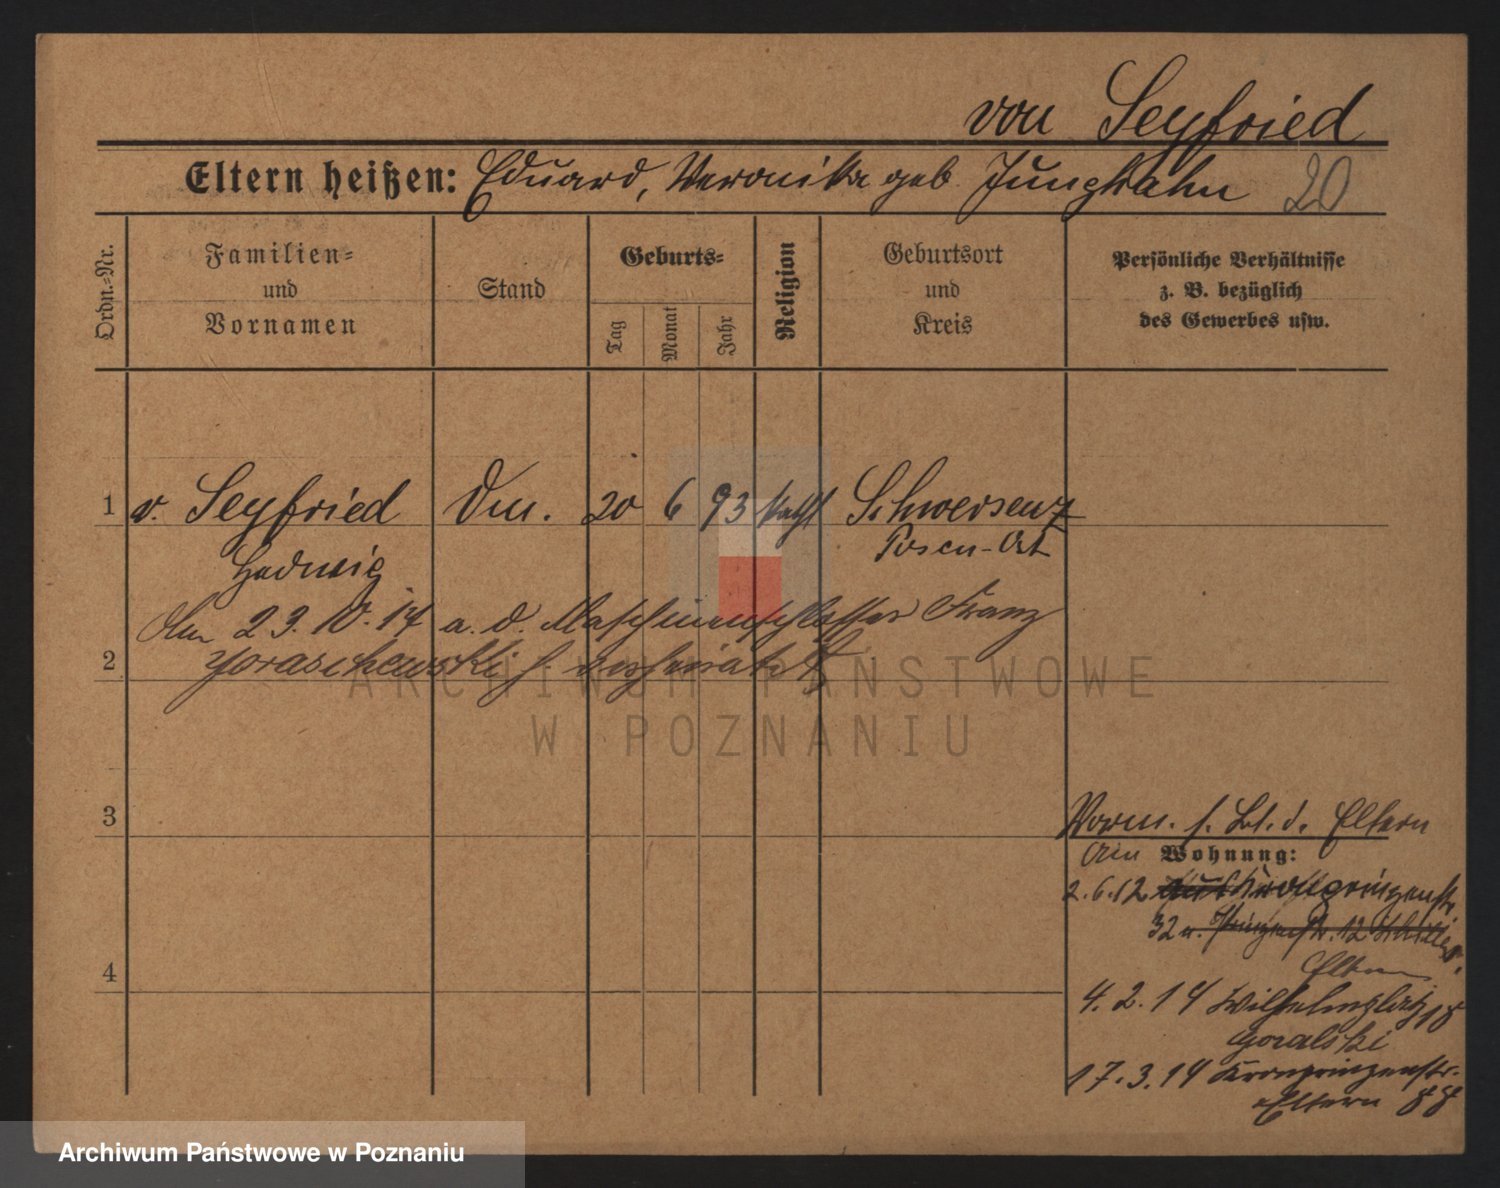 von Seyfried
Eltern heißen: Eduard, Veronika geb. Junghahn 20
Ordn.-Nr.
Familien-
und
Vornamen
Stand
Geburts-
Tag
Monat
Jahr
Religion
Geburtsort
und
Kreis
Persönliche Verhältnisse
z. B. bezüglich
des Gewerbes usw.
1 v. Seyfried 20 6 93 kath Schwersenz
Hedwig Posen-Ost
23. 10. 14 a. d. Maschinenschlosser Franz
2 verheiratet
ARCHIWUM PAŃSTWOWE
W POZNANIU
3
Vorm. s. d. Eltern
Wohnung:
2.6.12 Kronprinzenstr
32 12
Eltern
4
4.2.14 Wilhelmplatz 18
Goralski
17.3.14 Kronprinzenstr.
Eltern 88
Archiwum Państwowe w Poznaniu